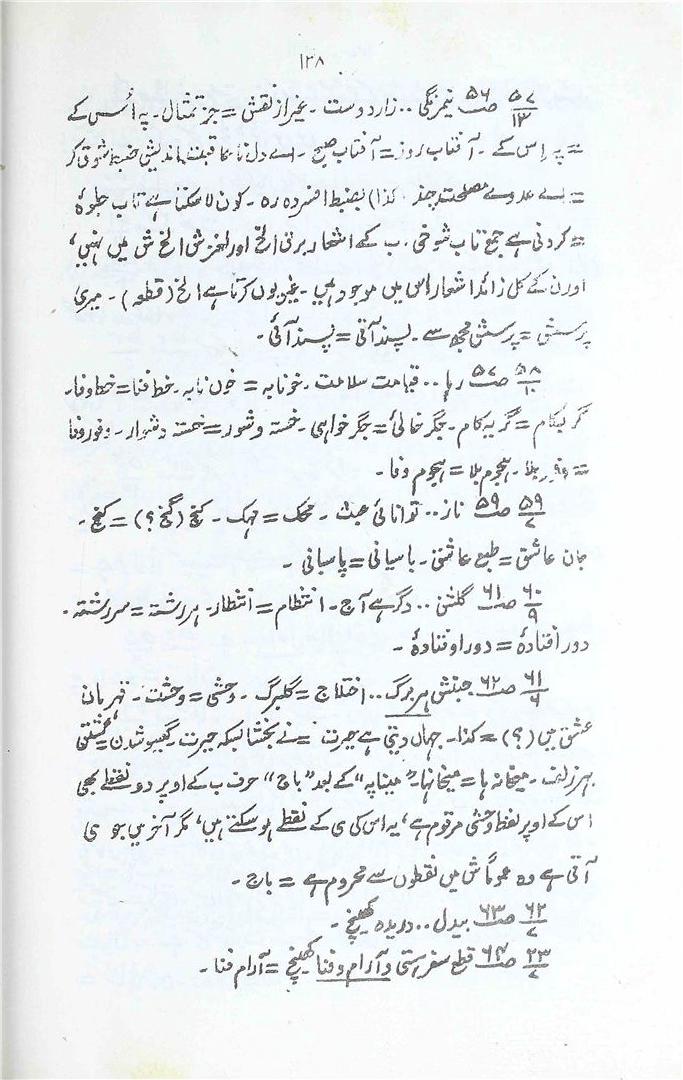 ۱۳۸
۵۷/۱۳ صـ ۵۶ نیرنگی .. زار دوست ۔ غیر از نقش = جز تمثال ۔ پہ اُس کے
= پر اس کے ۔ آفتاب روز = آفتاب صبح ۔ اے دل ناعاقبت اندیش ضبط شوق کر
= بے عدوے مصلحت چند (کذا) بضبط افسردہ رہ ۔ کون لا سکتا ہے تاب جلوۂ
= کردنی ہے جمع تاب شوخی ۔ ب کے اشعار برنی الخ اور لغزش الخ ش میں نہیں،
اور ن کے کل زائد اشعار اس میں موجود ہیں ۔ غیر یوں کرتا ہے الخ (قطعہ) ۔ میری
پرسش = پرسش مجھ سے ۔ پسند آتی = پسند آئی ۔
۵۸/۱۰ صـ ۵۷ رہا .. قیامت سلامت ۔ خونابہ = خون نابہ ۔ خط فنا = خط وفا ۔
گریکام = گریہ کام ۔ جگر خالیٔ = جگر خواہی ۔ خستہ و شور = خستہ دشوار ۔ وفور وفا
= وفور بلا ۔ ہجوم بلا = ہجوم وفا ۔
۵۹/۷ صـ ۵۹ ناز .. توانائی عبث ۔ محک = نمک ۔ کنج (گنج ؟) = کنج ۔
جان عاشق = طبع عاشق ۔ باسیانی = پاسبانی ۔
۶۰/۹ صـ ۶۱ گلشن .. دگر ہے آج ۔ انتظام = انتظار ۔ ہر رشتہ = سر رشتہ ۔
دور افتادۂ = دور اوفتادۂ ۔
۶۱/۶ صـ ۶۲ جنبش ہر برگ .. اختلاج = گلبرگ ۔ وحشی = وحشت ۔ قہرمان
عشق میں (؟) = کذا ۔ جہاں دیتی ہے حیرت = نے بخشا بسکہ حیرت ۔ گیسو شدن = گشتن
بہر زلف ۔ میخانہ ہا = میخانہا ۔ "مینا پہ" کے بعد "باج" حرف ب کے اوپر دو نقطے بھی
اس کے اوپر لفظ وحشی مرقوم ہے، یہ اس کی ی کے نقطے ہو سکتے ہیں، مگر آخر میں جو ی
آتی ہے وہ عموماً ش میں نقطوں سے محروم ہے = باج ۔
۶۲/۷ صـ ۶۳ بیدل .. دیدہ کھینچ ۔
۲۳/۷ صـ ۶۴ قطع سفر ہستی و آرام و فنا کھینچ = آرام فنا ۔